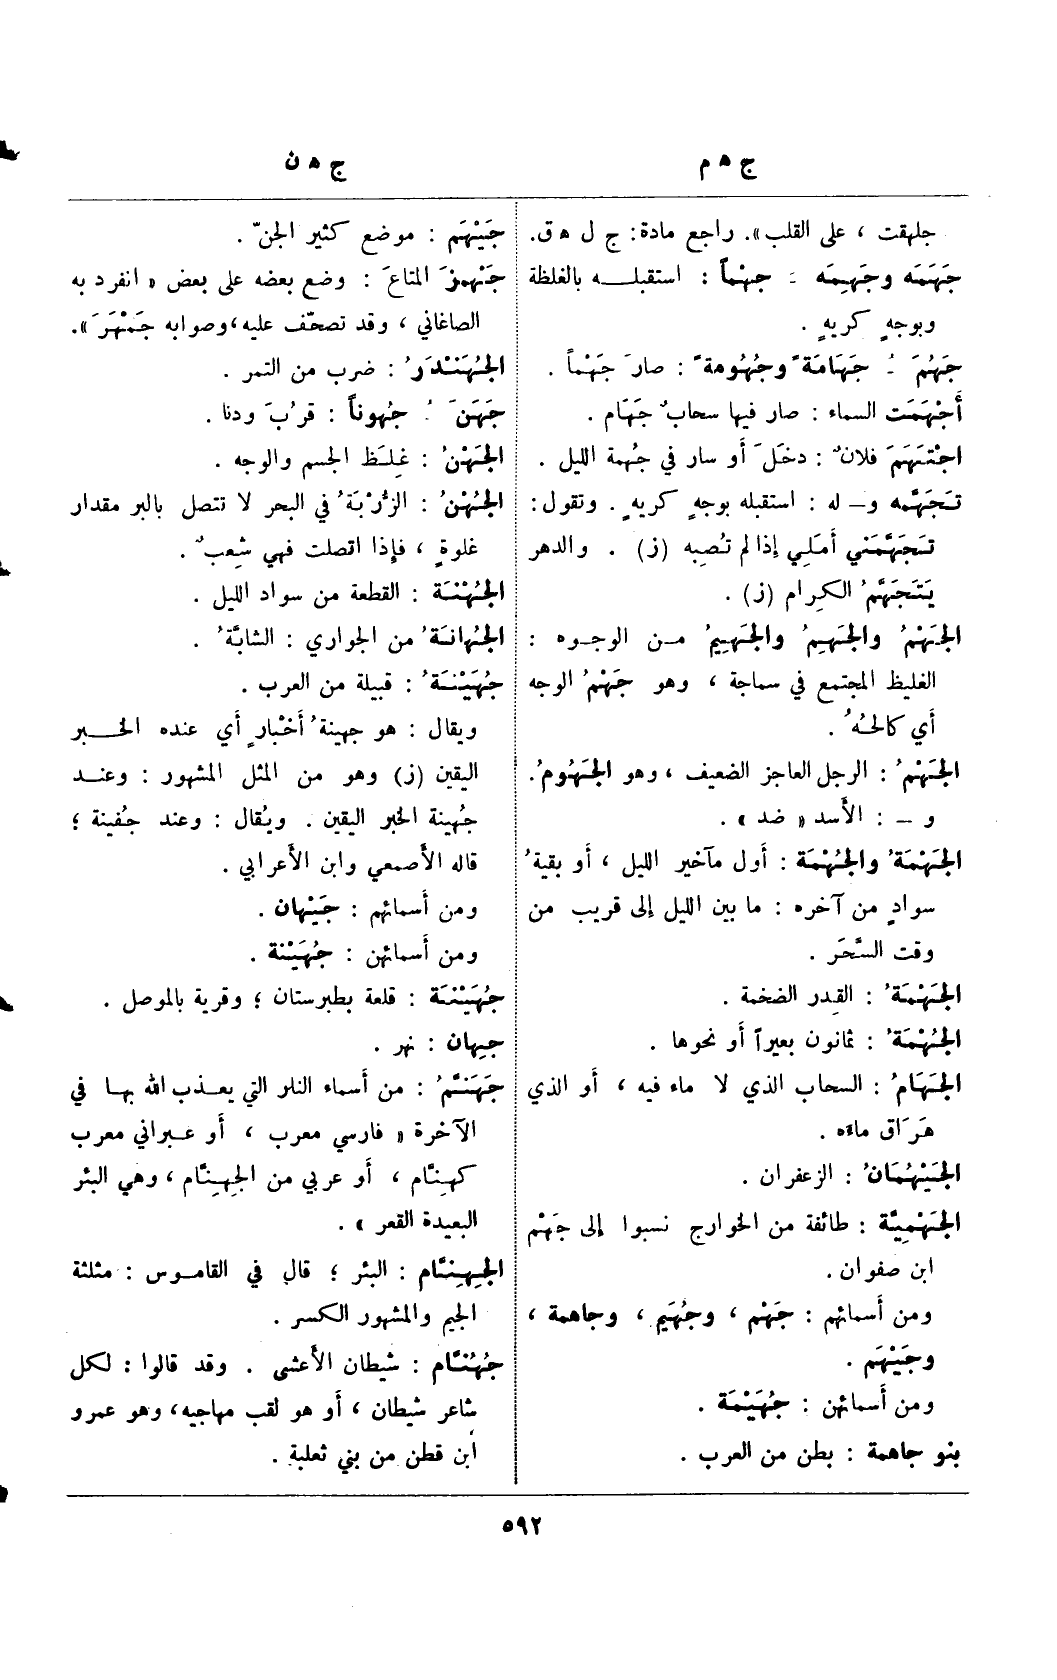 ج ه م
ج ه ن
جلهقت ، على القلب». راجع مادة: ج ل ه ق.
جَهَمَه وجَهِمَه ـَ جهْماً : استقبلـــه بالغلظة
وبوجهٍ كريهٍ .
جَهُمَ ـُ جَهَامَةً وجُهُومة ً : صارَ جَهْماً .
أَجْهَمَت السماء : صار فيها سحابٌ جَهَام .
اجْتَهَمَ فلانٌ : دخَلَ أو سار في جُهمة الليل .
تَجَهَّمه و— له : استقبله بوجهٍ كريهٍ . وتقول:
تَجَهَّمَني أَمَلي إذا لم تُصِبه (ز) . والدهر
يَتَجَهَّمُ الكِرام (ز) .
الجَهْمُ والجَهِمُ والجَهِيمُ مـن الوجـوه :
الغليظ المجتمع في سماجة ، وهو جَهْمُ الوجه
أي كالحُهُ .
الجَهْمُ : الرجل العاجز الضعيف ، وهو الجَهُومُ.
و — : الأسد « ضد » .
الجَهْمَةُ والجُهْمَة : أول مآخير الليل ، أو بقيةُ
سوادٍ من آخره : ما بين الليل إلى قريب من
وقت السَّحَر .
الجَهْمَةُ : القِدر الضخمة .
الجُهْمَةُ : ثمانون بعيراً أو نحوها .
الجَهَامُ : السحاب الذي لا ماء فيه ، أو الذي
هَرَاق ماءَه .
الجَيْهُمَانُ : الزعفران .
الجَهْمِيَّة : طائفة من الخوارج نسبوا إلى جَهْم
ابن صفوان .
ومن أسمائهم : جَهْم ، وجُهَيم ، وجاهمة ،
وجَيْهَم .
ومن أسمائهن : جُهَيْمَة .
بنو جاهمة : بطن من العرب .
جَيْهَم : موضع كثير الجنّ .
جَهْمزَ المتاعَ : وضع بعضه على بعض « انفرد به
الصاغاني ، وقد تصحّف عليه، وصوابه جَمْهَرَ ».
الجُهَنْدَرُ : ضرب من التمر .
جَهَنَ ـُ جُهوناً : قرُبَ ودنا .
الجَهْنُ : غِلَظ الجسم والوجه .
الجُهْنُ : الزُّرْبَةُ في البحر لا تتصل بالبر مقدار
غلوةٍ ، فإذا اتصلت فهي شِعبٌ .
الجُهْنَة : القطعة من سواد الليل .
الجُهَانَةُ من الجواري : الشابَّةُ .
جُهَيْنَةُ : قبيلة من العرب .
ويقال : هو جهينةُ أخْبارٍ أي عنده الخـــبر
اليقين (ز) وهو من المثل المشهور : وعنـد
جُهينة الخبر اليقين . ويُقال : وعند جُفينة ؛
قاله الأصمعي وابن الأعرابي .
ومن أسمائهم : جَيْهان .
ومن أسمائهن : جُهَيْنة .
جُهَيْنَة : قلعة بطبرستان ؛ وقرية بالموصل .
جيهان : نهر .
جَهَنَّمُ : من أسماء النار التي يعـذب الله بهـا في
الآخرة « فارسي معرب ، أو عـبراني معرب
كهِنَّام ، أو عربي من الجِهِنَّام ، وهي البئر
البعيدة القعر » .
الجِهِنَّام : البئر ؛ قال في القامـوس : مثلثة
الجيم والمشهور الكسر .
جُهُنَّام : شيطان الأعشى . وقد قالوا : لكل
شاعر شيطان ، أو هو لقب مهاجيه، وهو عمرو
ابن قطن من بني ثعلبة .
٥٩٢